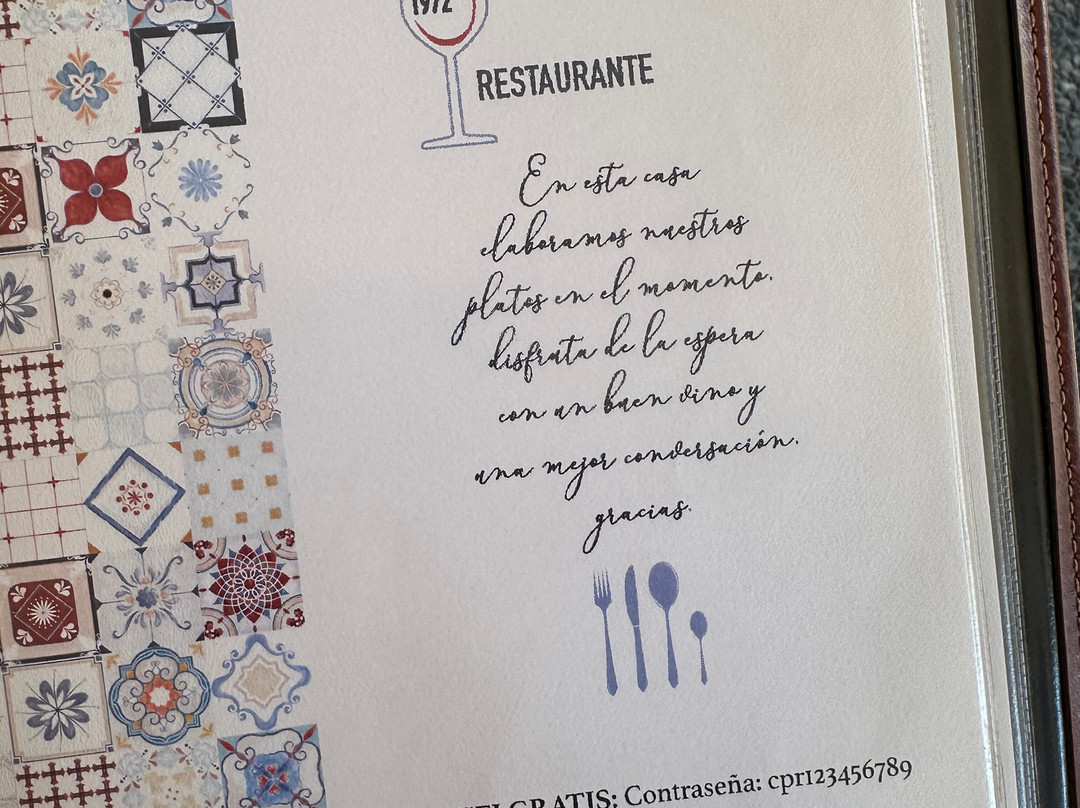 1972
RESTAURANTE
En esta casa
elaboramos nuestros
platos en el momento.
disfruta de la espera
con un buen vino y
una mejor conversación.
gracias.
GRATIS: Contraseña: cpr123456789